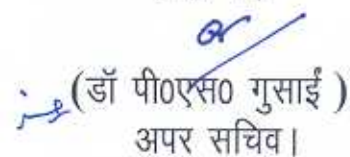 (डॉ पी0एस0 गुसाईं )
अपर सचिव।